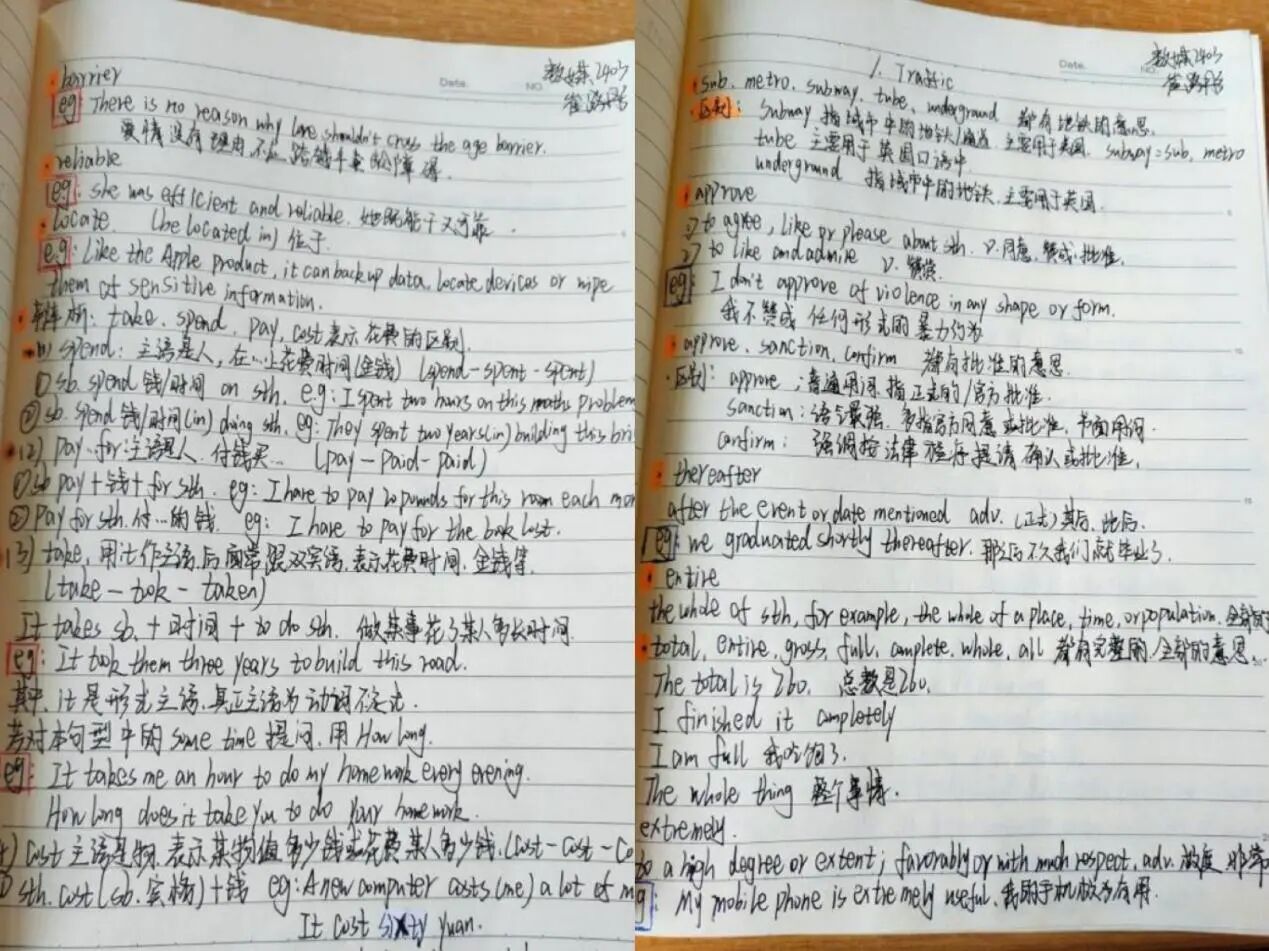 Date.
NO.
数媒2403
barrier
eg: There is no reason why love shouldn't cross the age barrier.
爱情没有理由不 跨越年龄的障碍.
reliable
eg: she was efficient and reliable. 她既能干又可靠.
locate (be located in) 位于.
e.g: Like the Apple product, it can back up data, locate devices or wipe
them of sensitive information.
辨析: take. spend. pay. cost 表示花费的区别.
(1) spend: 主语是人, 在…上花费时间(金钱) (spend-spent-spent)
① sb. spend 钱/时间 on sth. e.g: I spent two hours on this maths problem
② sb. spend 钱/时间(in) doing sth. eg: They spent two years(in) building this bri
(2) pay for: 主语是人. 付钱买… (pay-paid-paid)
① sb pay + 钱 + for sth. eg: I have to pay 20 pounds for this room each mon
② Pay for sth. 付…的钱. eg: I have to pay for the book lost.
(3) take, 用it作主语, 后面常跟双宾语, 表示花费时间. 金钱等.
(take - took - taken)
It takes sb. + 时间 + to do sth. 做某事花了某人多长时间.
eg: It took them three years to build this road.
其中, it 是形式主语, 真正主语为动词不定式.
若对本句型中的 some time 提问, 用 How long.
eg: It takes me an hour to do my homework every evening.
How long does it take you to do your homework.
4) cost 主语是物. 表示某物值多少钱或花费某人多少钱. (cost-cost-co
sth. cost (sb. 宾格) + 钱 eg: A new computer costs (me) a lot of m
It cost sixty yuan.
Date.
NO.
数媒2403
1. Traffic
sub. metro. subway. tube. underground 都有地铁的意思.
区别: subway 指城市中的地铁/ 主要用于美国. subway = sub. metro
tube 主要用于英国口语中
underground 指城市中的地铁, 主要用于英国.
approve
1) to agree, like or please about sth. v. 同意. 赞成. 批准.
2) to like and admire v. 赞赏.
eg: I don't approve of violence in any shape or form.
我不赞成任何形式的暴力行为
approve. sanction. confirm 都有批准的意思.
区别: approve: 普通用词. 指正式的/官方批准.
sanction: 语气最强. 多指官方同意或批准. 书面用词.
confirm: 强调按法律程序提请确认或批准.
thereafter
after the event or date mentioned adv. (正式) 其后. 此后.
eg: we graduated shortly thereafter. 那之后不久我们就毕业了.
entire
the whole of sth, for example, the whole of a place, time, or population. 全部的
total, entire, gross, full, complete, whole, all 都有完整的. 全部的意思.
The total is 260. 总数是260.
I finished it completely
I am full 我吃饱了.
The whole thing 整个事情.
extremely.
to a high degree or extent; favorably or with much respect. adv. 极度 非常
eg: My mobile phone is extremely useful. 我的手机极为有用.